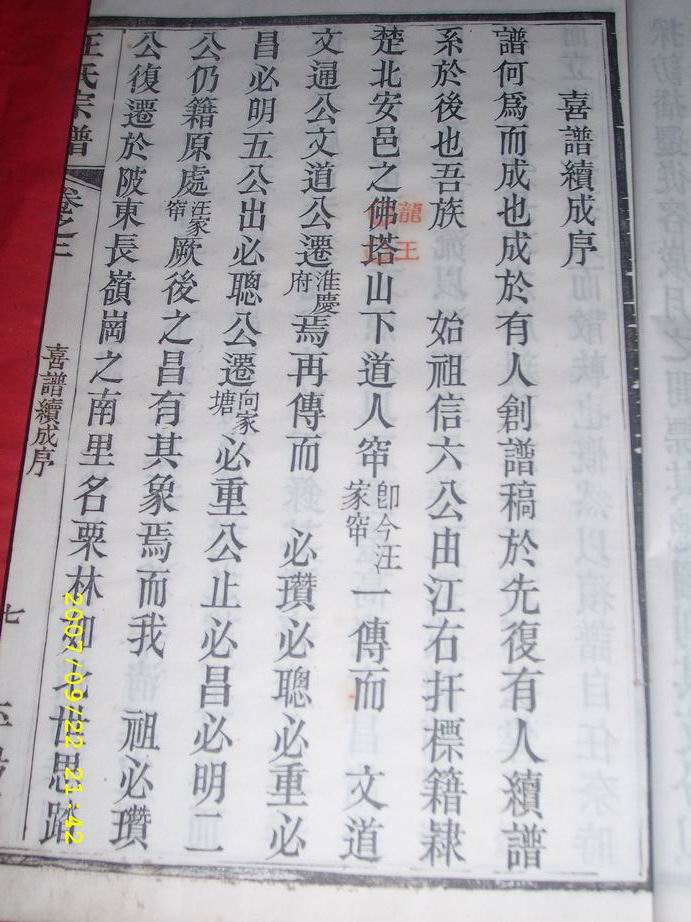 喜譜續成序
譜何爲而成也成於有人創譜稿於先復有人續譜
系於後也吾族 始祖信六公由江右扦標籍隸
楚北安邑之佛塔山下道人窂卽今汪家窂一傳而 文道
龍王
文通公文道公遷淮慶府焉再傳而 必瓚必聰必重必
昌必明五公出必聰公遷向家塘必重公止必昌必明二
公仍籍原處汪家窂厥後之昌有其象焉而我 祖必瓚
公復遷於陂東長嶺崗之南里名栗林如北世思
氏宗譜
卷之二
喜譜續成序
七
2007/09/22 21:42